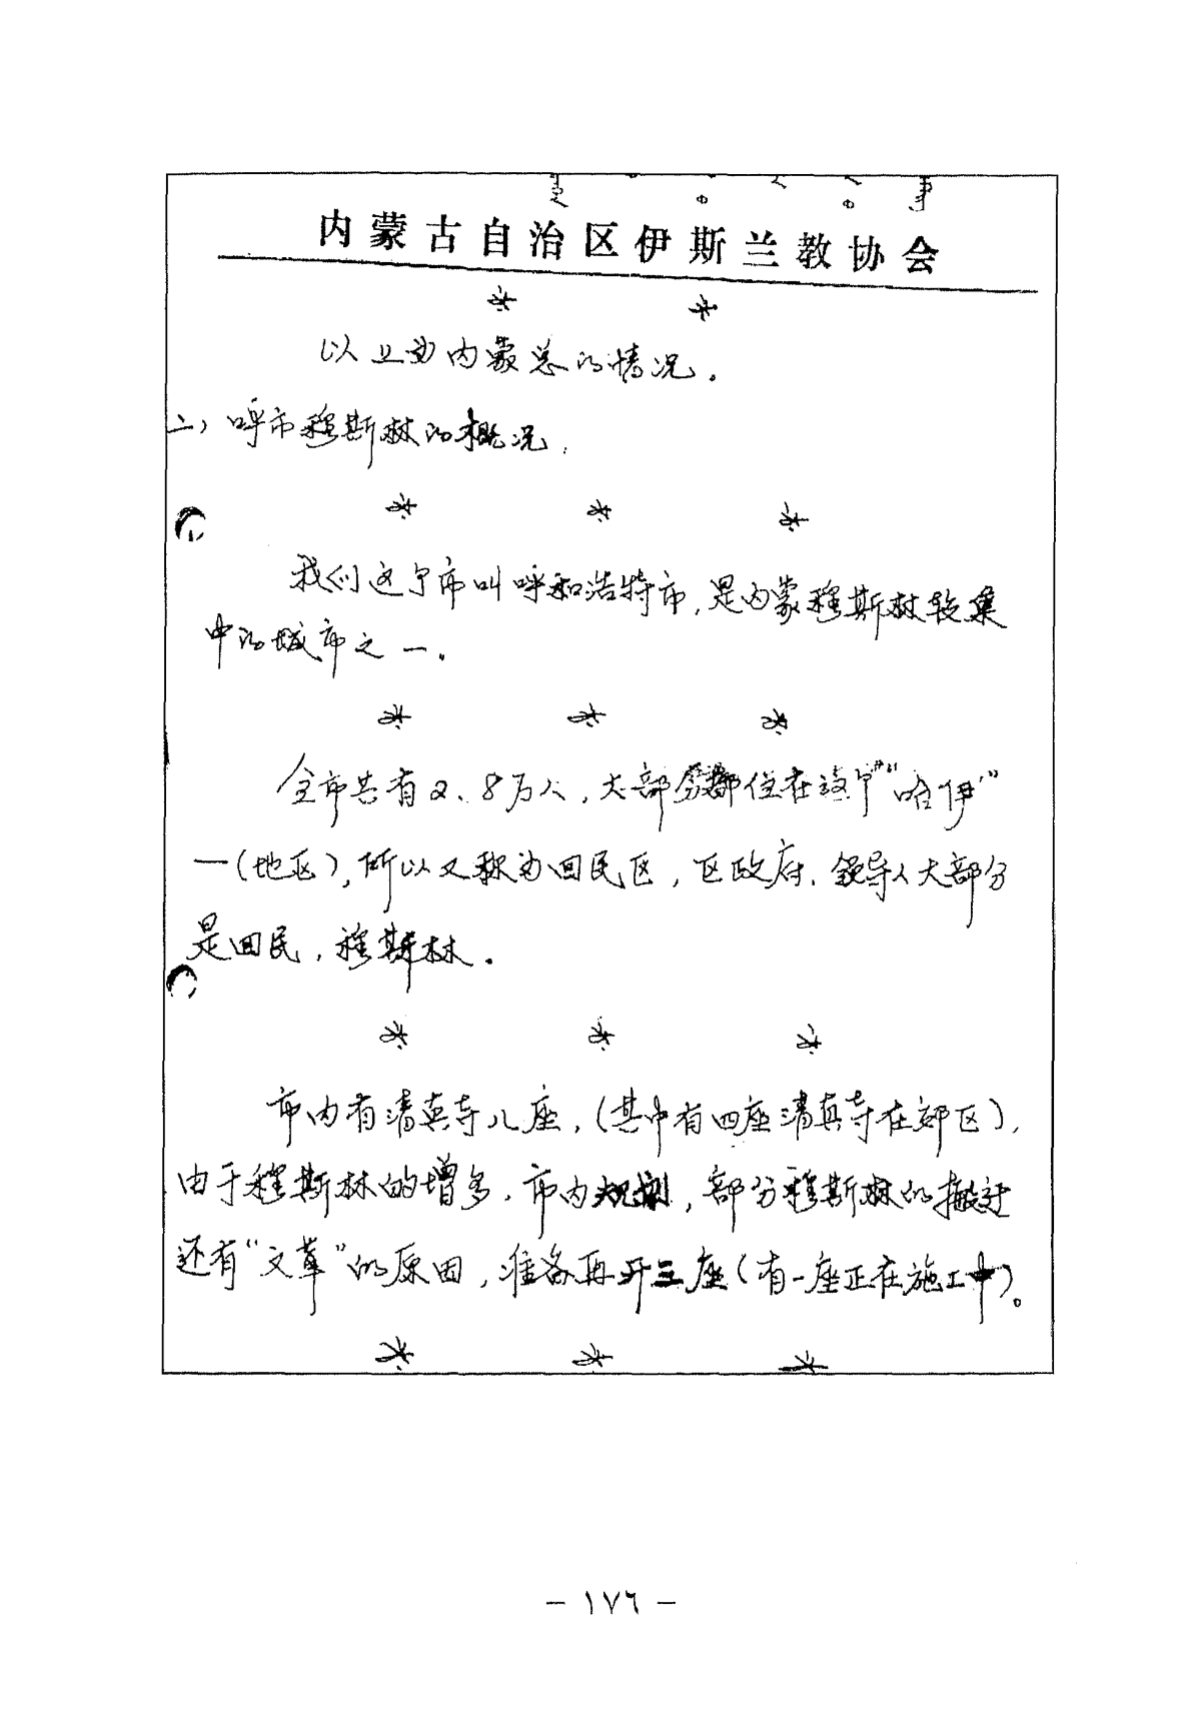 内蒙古自治区伊斯兰教协会
以上为内蒙总的情况。
二、呼市穆斯林的概况.
我们这个市叫呼和浩特市,是内蒙穆斯林较集
中的城市之一.
全市共有2、8万人,大部分都住在这个“哈伊”
一(地区),所以又称为回民区,区政府.领导人大部分
是回民,穆斯林.
市内有清真寺八座,(其中有四座清真寺在郊区),
由于穆斯林的增多.市内规划,部分穆斯林的搬迁
还有“文革”的原因,准备再开三座(有一座正在施工中)。
- ١٧٦ -